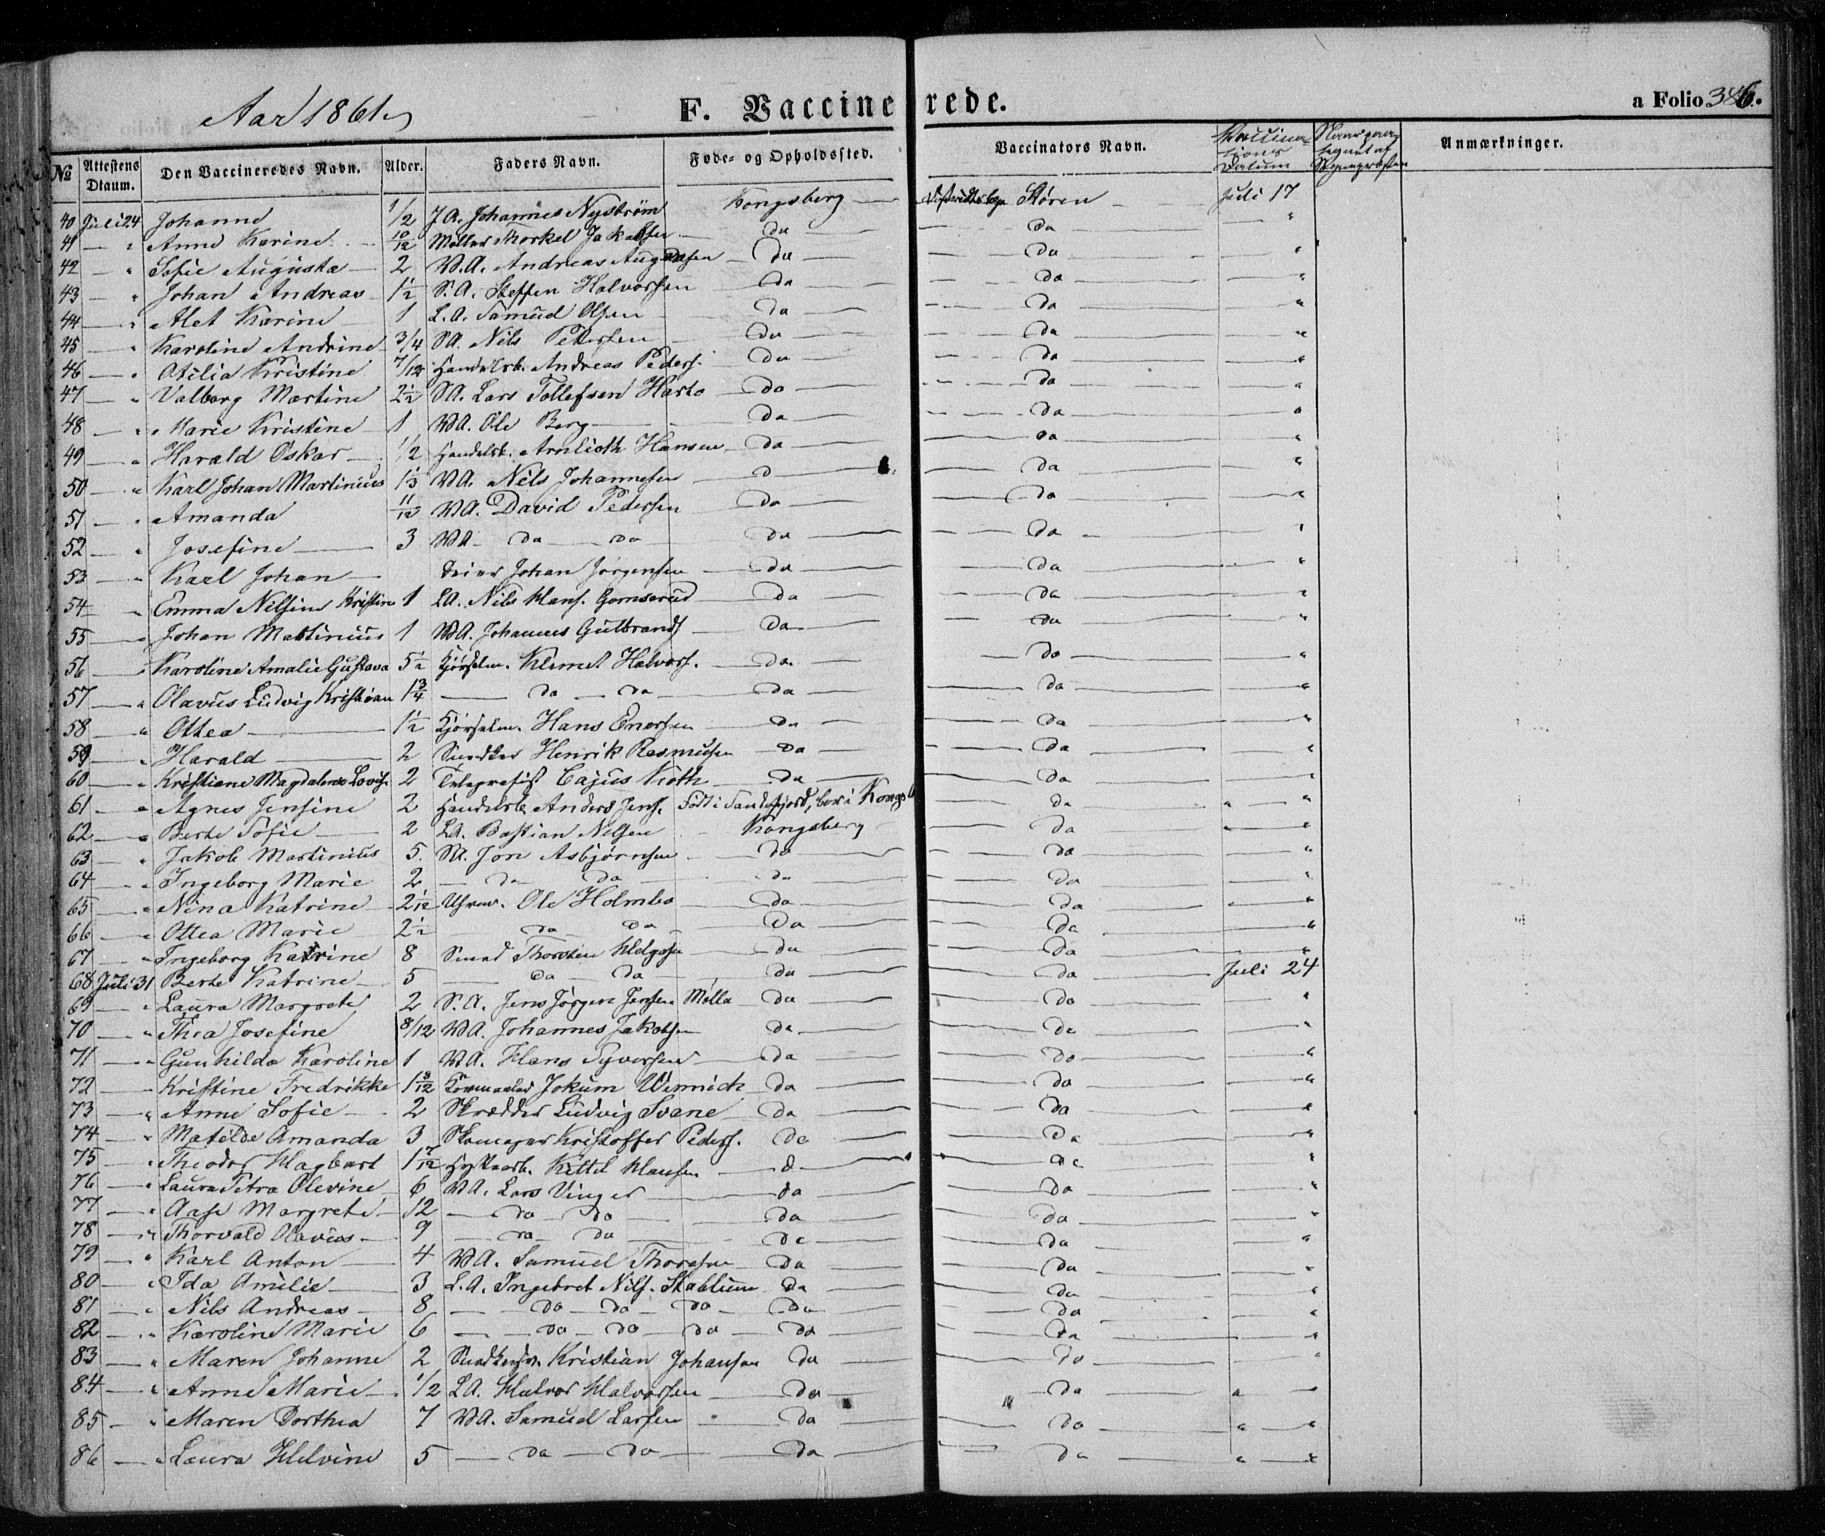 Aar 1861.
F. Vaccinerede.
a Folio 346.
No | Attestens Dtaum. | Den Vaccineredes Navn. | Alder. | Faders Navn. | Føde- og Opholdssted. | Vaccinators Navn. | Vaccinations Datum | Anmærkninger.
40 Juli 24 Johanne 1/2 J.A. Johannes Nystrøm Kongsberg Støren Juli 17
41 " Anne Karine 10/12 Møller Thorkel Jakobsen Do Do "
42 " Sofie Augusta 2 V.A. Andreas Do Do "
43 " Johan Andreas 1 1/2 S.A. Steffen Halvorsen Do Do "
44 " Alet Karine 1 L.A. Samuel Olsen Do Do "
45 " Karoline Andrine 3/4 SA. Nils Pettersen Do Do "
46 " Otilia Kristine 7/12 Handelsb. Andreas Peders. Do Do "
47 " Valborg Martine 2 1/2 SA. Lars Tollefsen Do Do "
48 " Marie Kristine 1 VA. Ole Berg Do Do "
49 " Harald Oskar 1/2 Handelsb. Arnlioth Hansen Do Do "
50 " Karl Johan Martinius 1/3 VA. Nils Johannesen D Do "
51 " Amanda 11/12 VA. David Pedersen Do Do "
52 " Josefine 3 VA Do Do Do Do "
53 " Karl Johan Johan Jørgensen Do Do "
54 " Emma Nilsine Kristine 1 LA. Nils Hans. Gomserud Do Do "
55 " Johan Martinius 1 VA. Johannes Gulbrands. Do Do "
56 " Karoline Amalie Gustava 5 1/2 Kjørselm. Klemet Halvors. Do Do "
57 " Olavus Ludvig Kristian 1 3/4 Do Do Do Do "
58 " Ottea 1 1/2 Kjørselm. Hans Enersen Do Do "
59 " Harald 2 Snedker Henrik Rasmusen Do Do "
60 " Kristiane Magdalene Lovise 2 Telegrafist Cajus Do Do "
61 " Agnes Jensine 2 Handelsb. Anders Jens. Født i Sandefjord, bor i Kongsb Do "
62 " Berte Sofie 2 LA. Bastian Nilsen Kongsberg Do "
63 " Jakob Martinius 5. SA. Jon Asbjørnsen Do Do "
64 " Ingeborg Marie 2 Do Do Do Do "
65 " Nina Katrine 2 1/12 Uhrm. Ole Holmbo Do Do "
66 " Ottea Marie 2 1/2 Do Do Do Do "
67 " Ingeborg Katrine 8 Smed Thorsten Helgesen Do Do "
68 Juli 31 Berte Katrine 5 Do Do Do Do Juli 24
69 " Laura Margrete 2 S.A. Jens Jørgen Jensen Mølla Do Do "
70 " Thea Josefine 8/12 VA. Johannes Jakobsen Do Do "
71 " Gunhilda Karoline 1 VA. Hans Syversen Do Do "
72 " Kristine Fredrikke Jokum Do Do "
73 " Anne Sofie 2 Skrædder Ludvig Svane Do Do "
74 " Matilde Amanda 3 Skomager Kristoffer Peders. Do Do "
75 " Theodor Hagbart 1 7/12 Hyttearb. Kittil Hansen D Do "
76 " Laura Petra Olevine 6 VA. Lars Vinger Do Do "
77 " Aase Margrete 12 Do Do Do Do "
78 " Thorvald Olavus 9 Do Do Do Do "
79 " Karl Anton 4 VA. Samuel Thoresen Do Do "
80 " Ida Amilie 3 L.A. Ingebret Nils. Do Do "
81 " Nils Andreas 8 Do Do Do Do Do "
82 " Karoline Marie 6 Do Do Do Do Do "
83 " Maren Johanne 2 Kristian Johansen Do Do "
84 " Anne Marie 1/2 LA. Halvor Halvorsen Do Do " "
85 " Maren Dorthea 7 VA. Samuel Larsen " Do Do " "
86 " Laura Helvine 5 Do Do Do Do " "